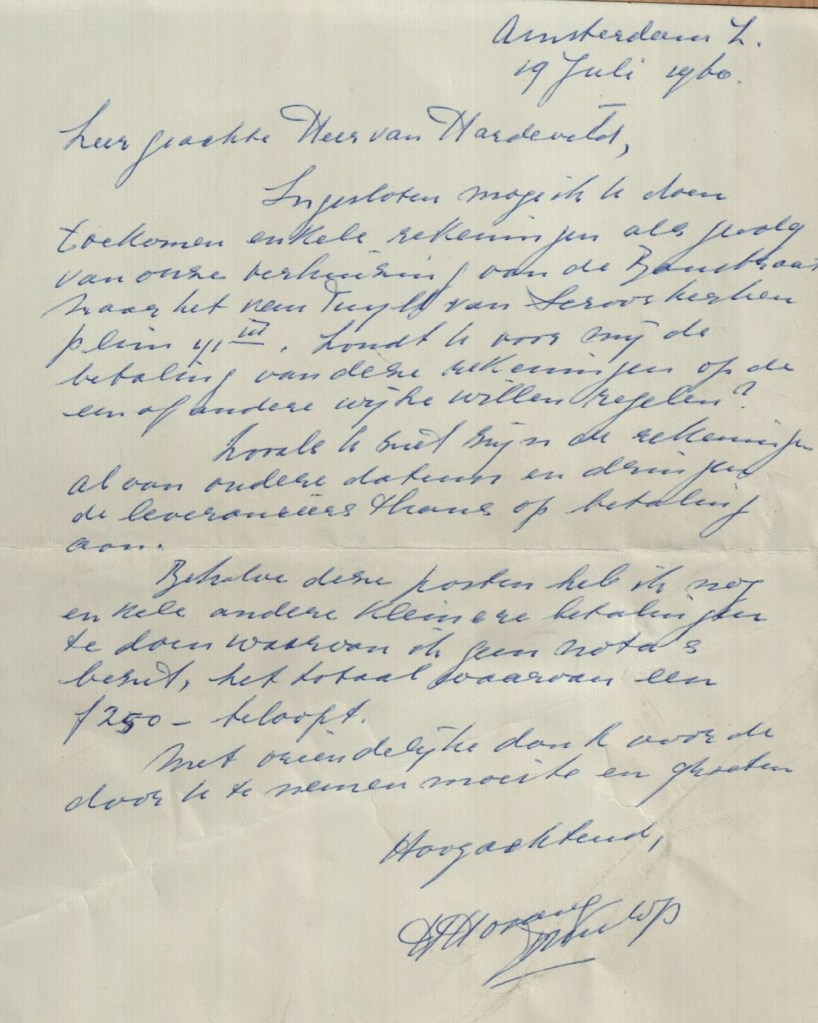 Amsterdam Z.
19 Juli 1960.
Zeer geachte Heer van Hardeveld,
Ingesloten moge ik U doen
toekomen enkele rekeningen als gevolg
van onze verhuizing van de Banstraat
naar het van Tuyll van Serooskerken
plein 41 III. Zoudt U voor mij de
betaling van deze rekeningen op de
een of andere wijze willen regelen?
Zooals U ziet zijn de rekeningen
al van oudere datum en dringen
de leveranciers thans op betaling
aan.
Behalve deze posten heb ik nog
enkele andere kleinere betalingen
te doen waarvan ik geen nota's
bezit, het totaal waarvan een
f 250 - beloopt.
Met vriendelijke dank voor de
door U te nemen moeite en groeten
Hoogachtend,